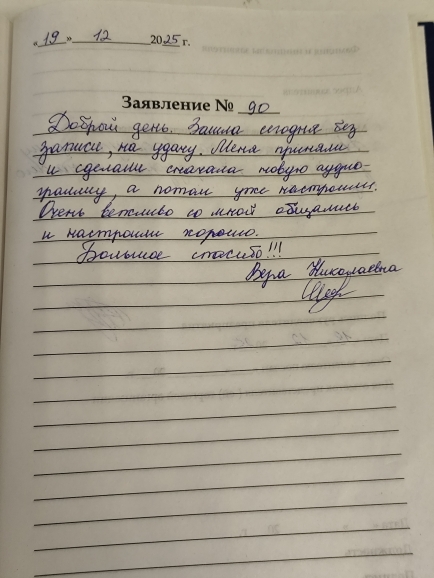 «19» 12 2025 г.
Заявление № 90
Добрый день. Зашла сегодня без
записи, на удачу. Меня приняли
и сделали сначала новую аудио-
грамму, а потом уже настроили.
Очень вежливо со мной общались
и настроили хорошо.
Большое спасибо!!!
Вера Николаевна